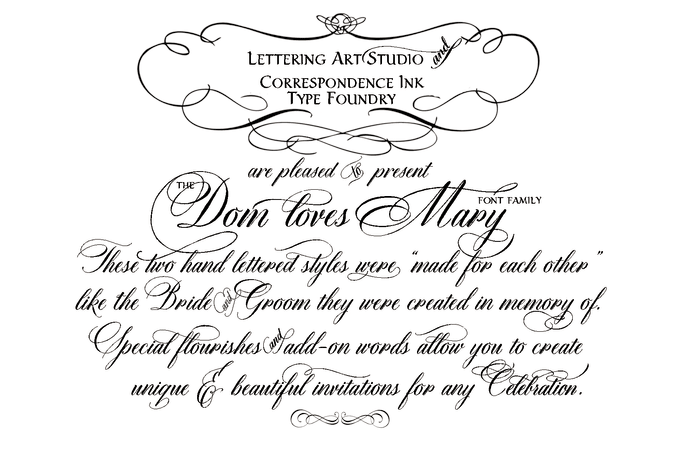 Lettering Art Studio and
Correspondence Ink
Type Foundry
are pleased to present
The Dom loves Mary font family
These two hand lettered styles were "made for each other"
like the Bride and Groom they were created in memory of.
Special flourishes and add-on words allow you to create
unique & beautiful invitations for any Celebration.